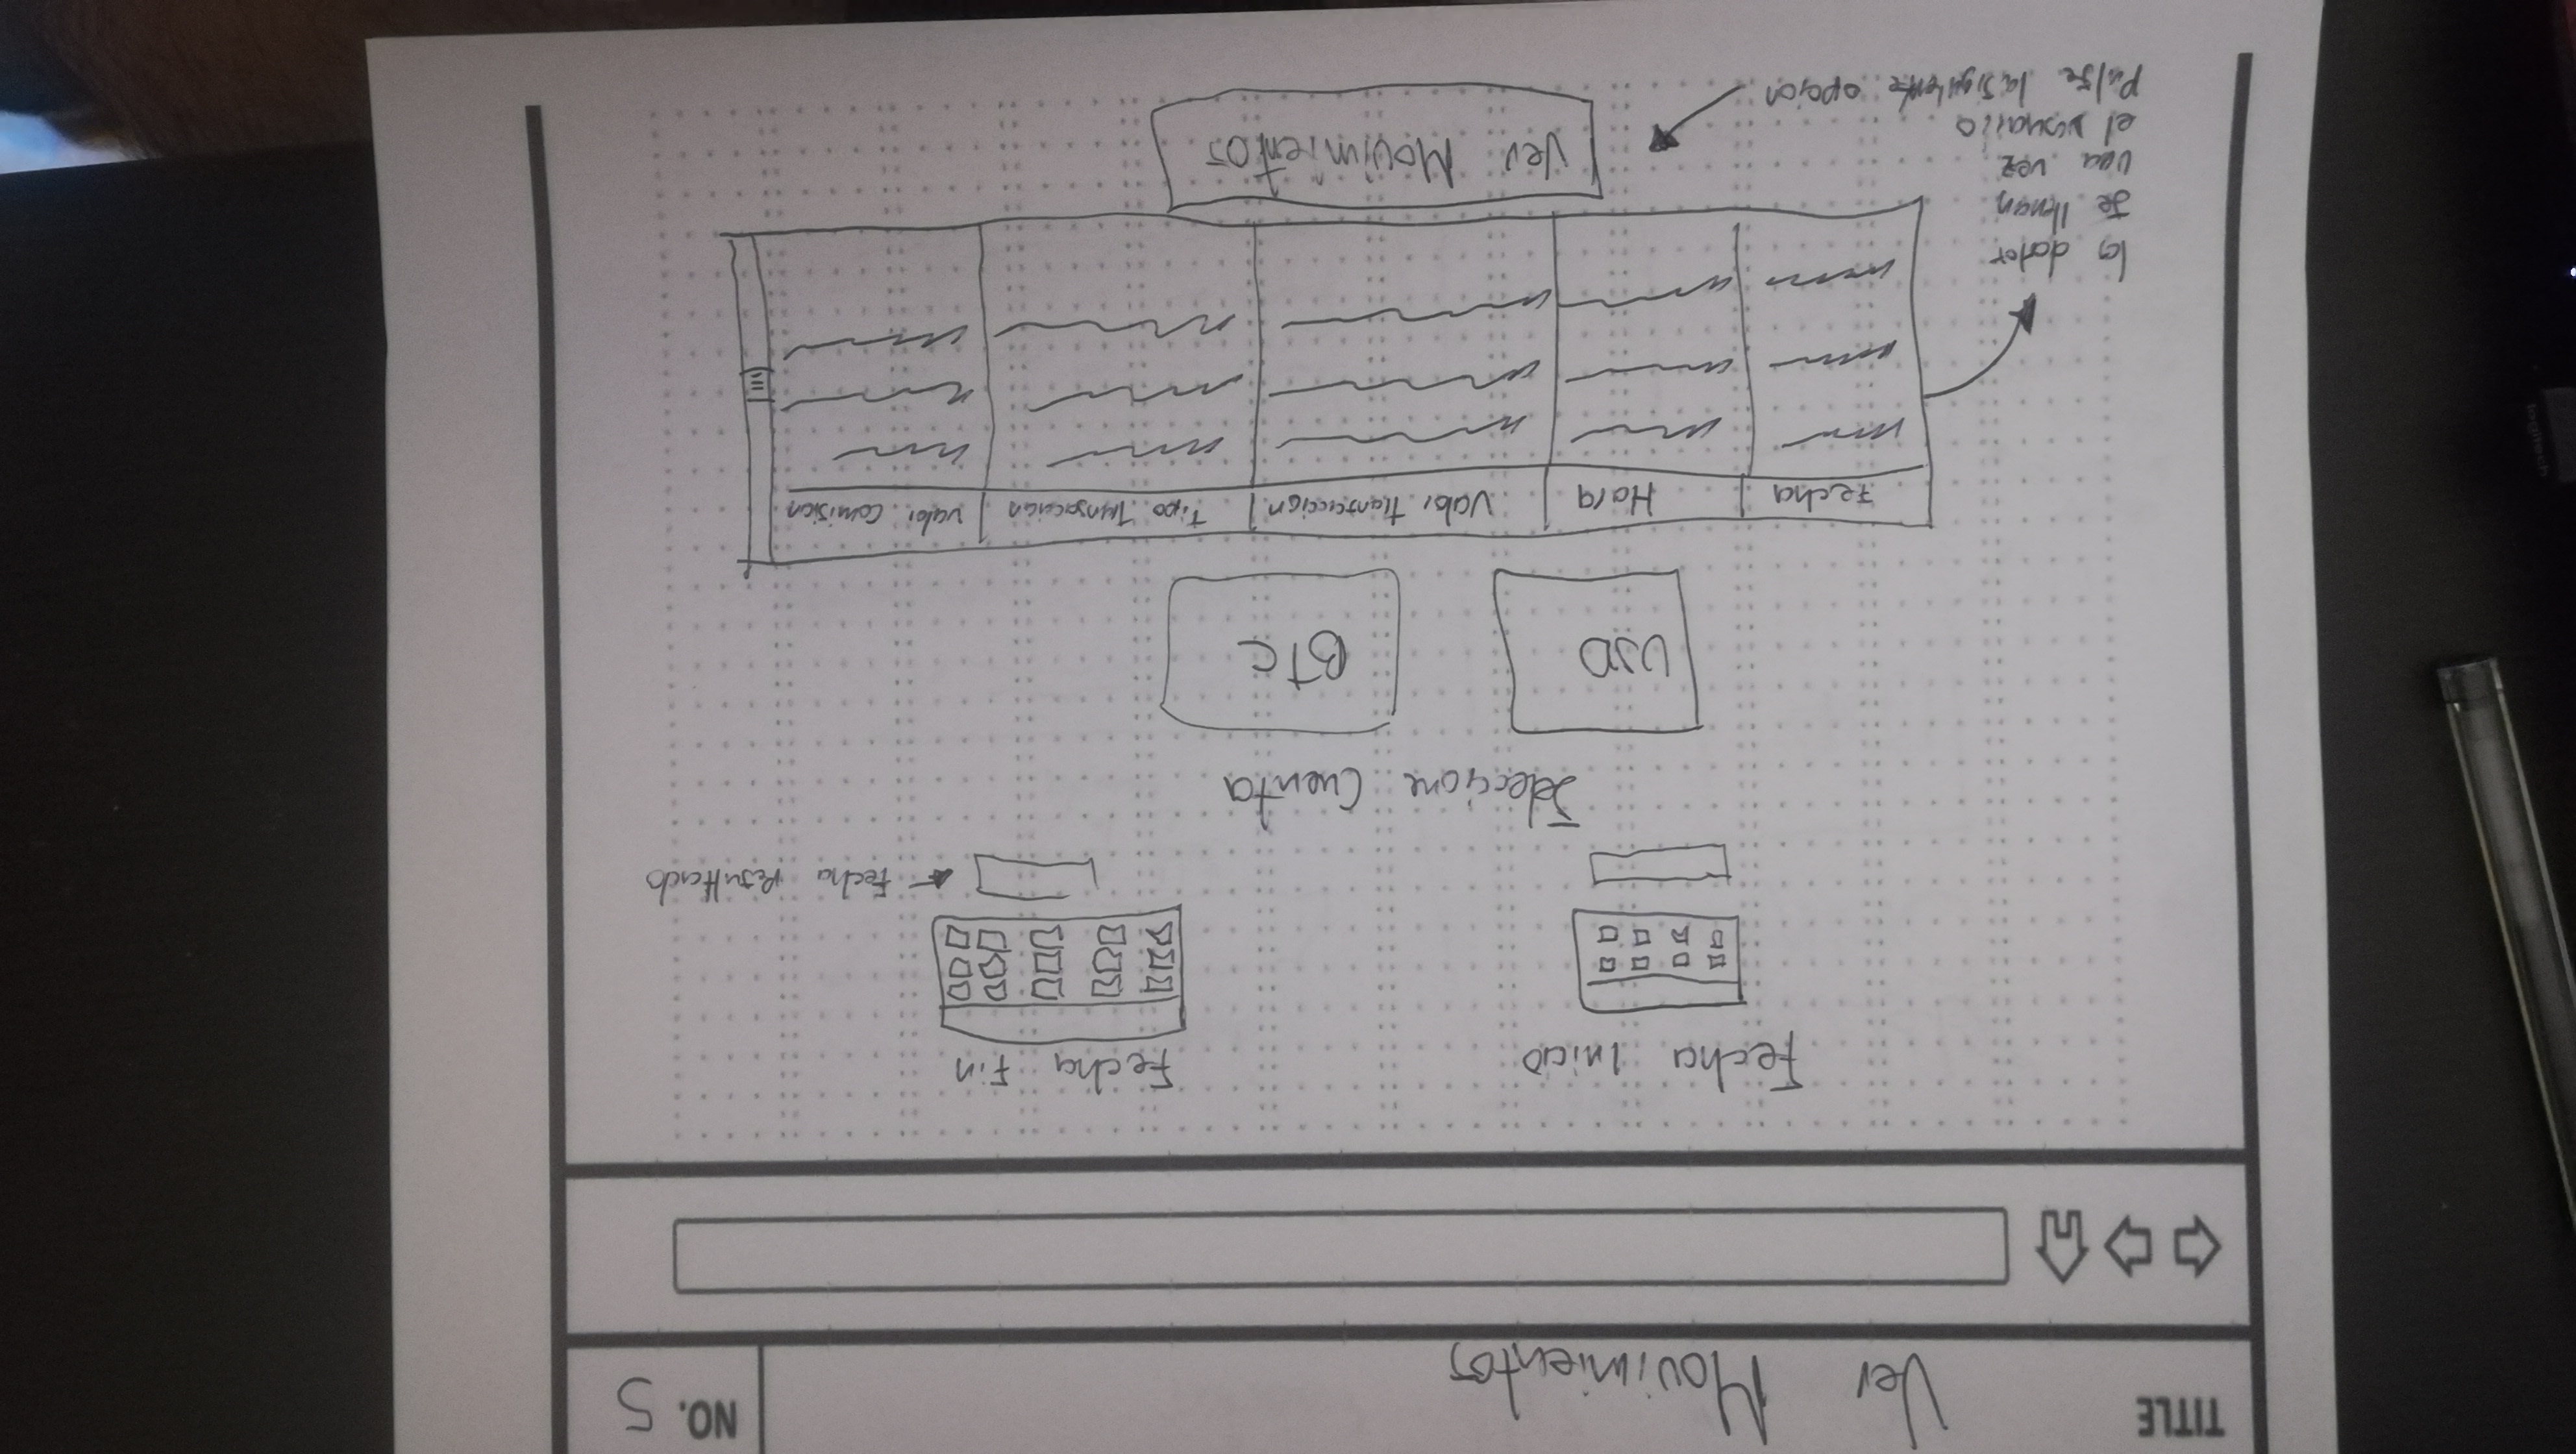 TITLE
Ver Movimientos
NO. 5
Fecha Inicio
Fecha Fin
← Fecha Resultado
Seleccione Cuenta
USD
BTC
Fecha
Hora
Valor Transaccion
Tipo Transaccion
Valor Comision
los datos
se llenan
una vez
el usuario
pulse la siguiente opcion
Ver Movimientos
logitech